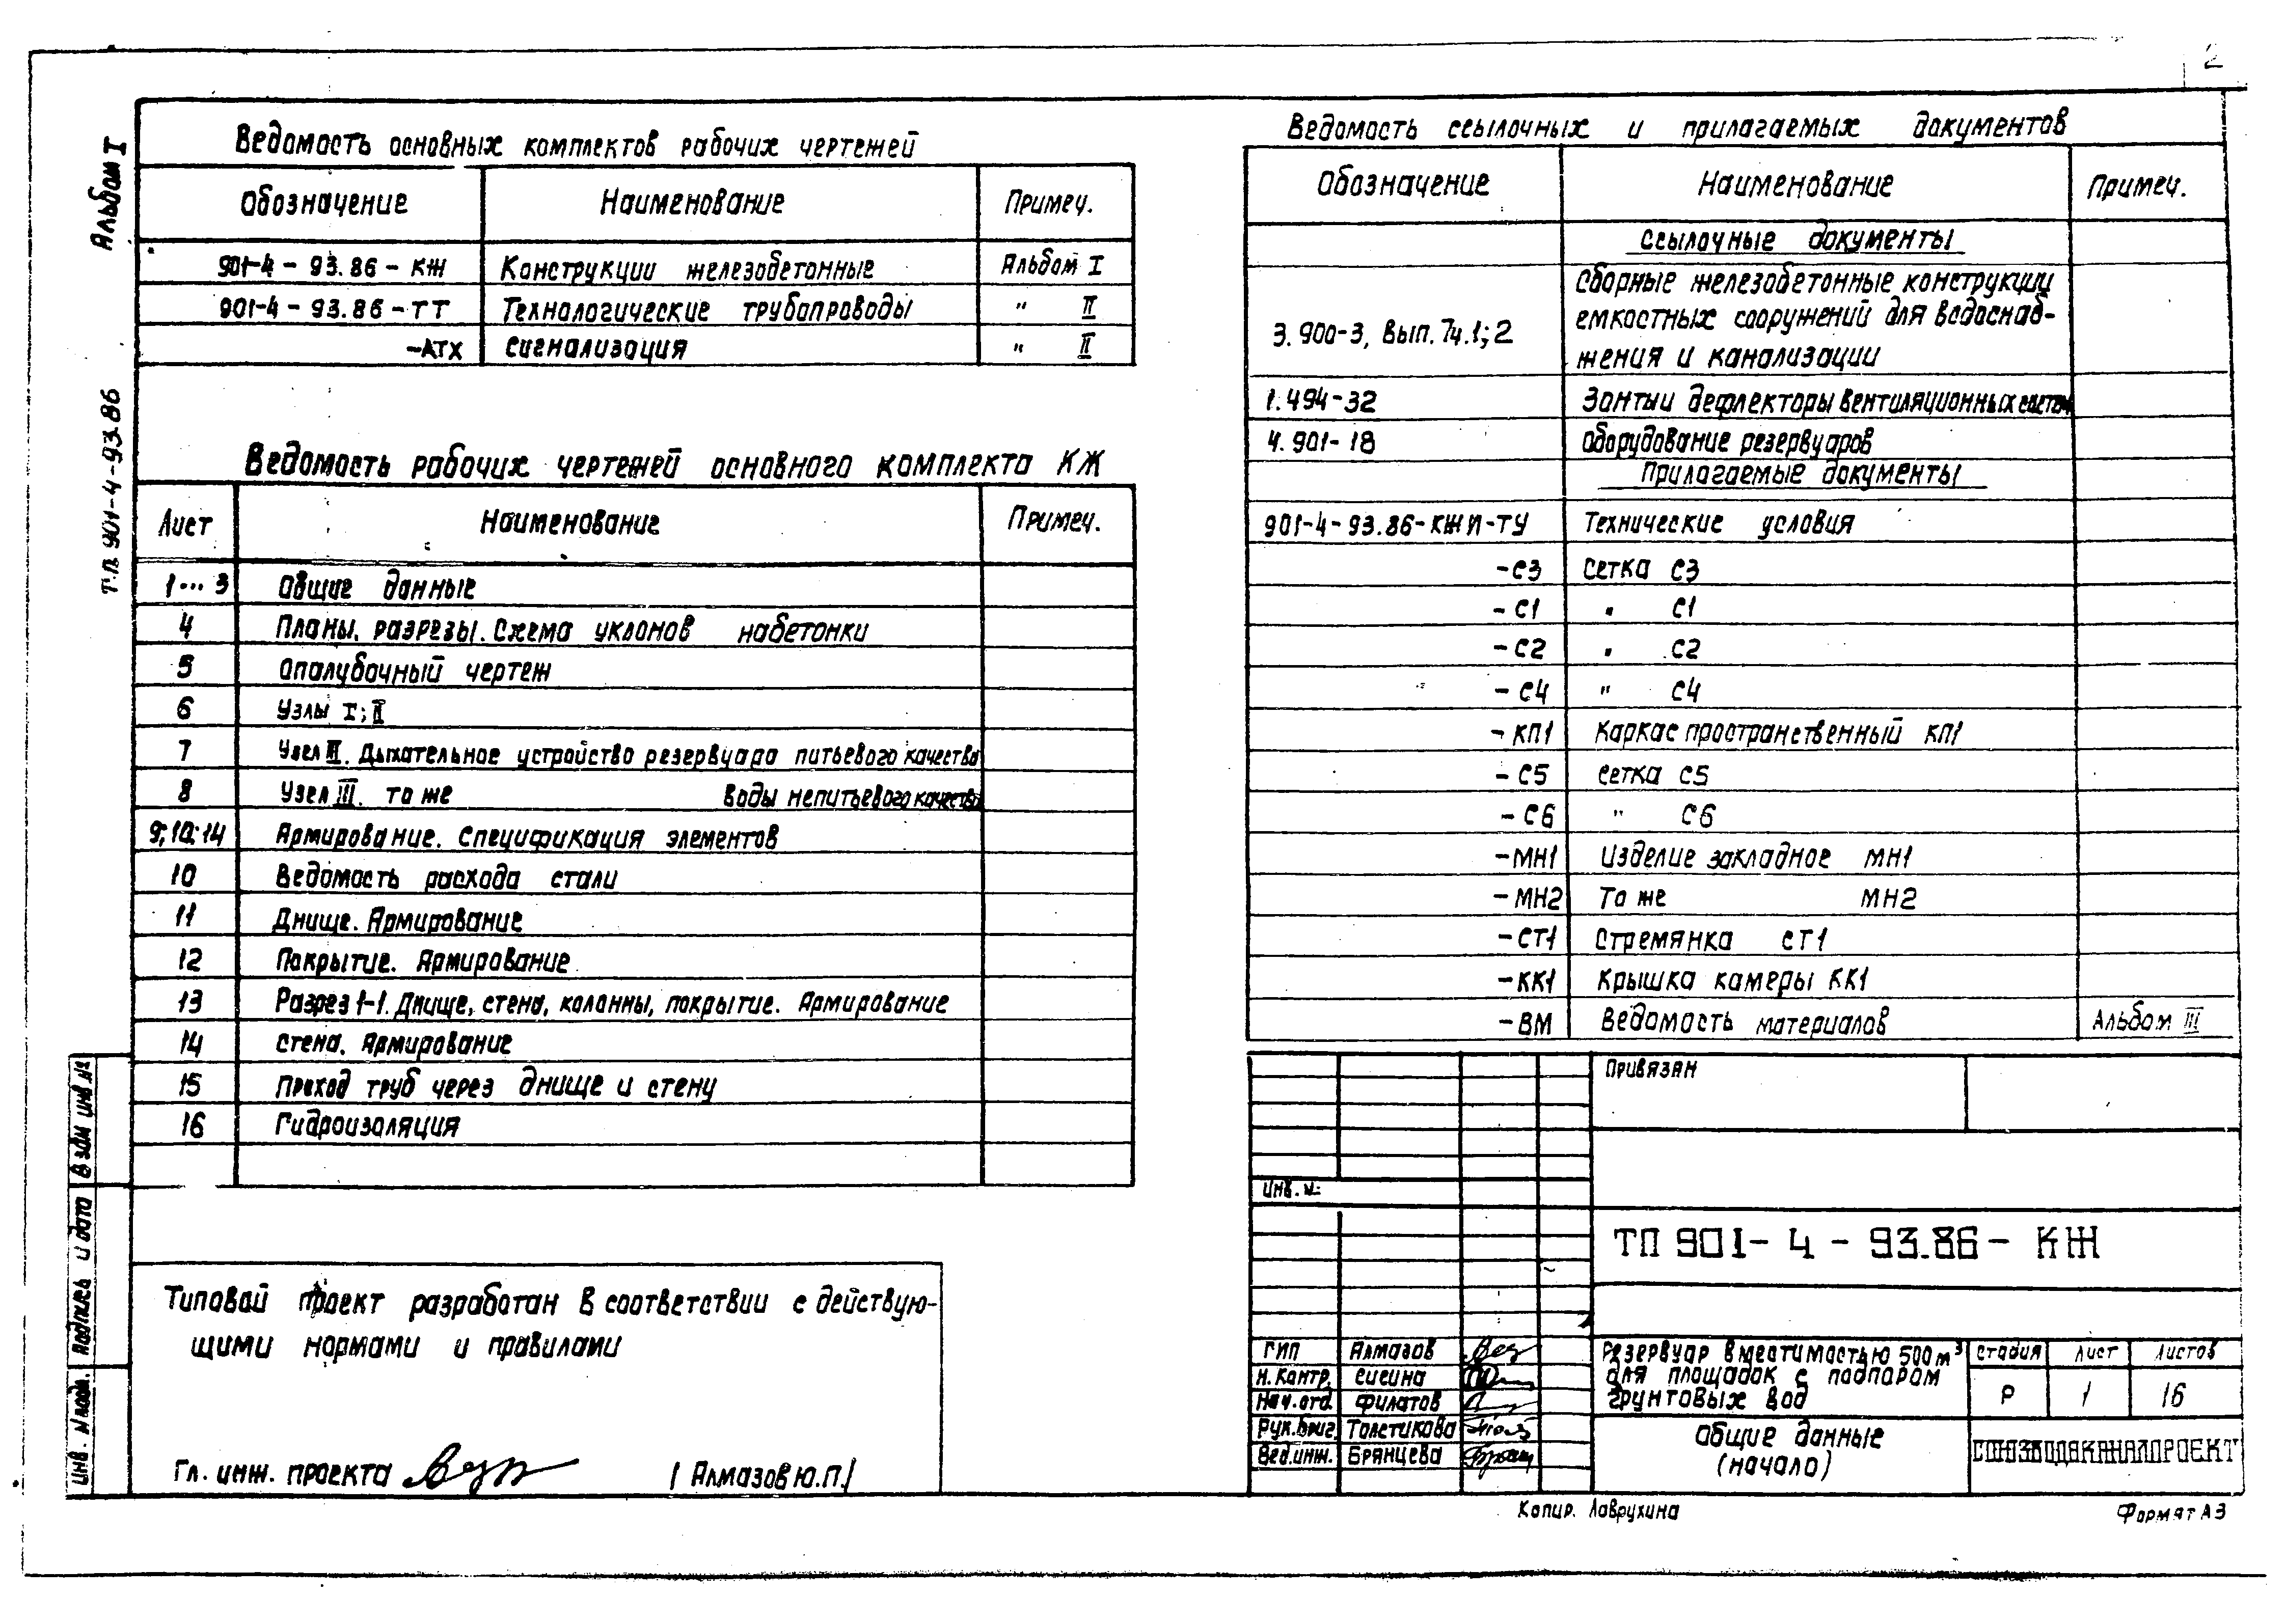 2
Альбом I
Т.П. 901-4-93.86
Ведомость основных комплектов рабочих чертежей
Обозначение Наименование Примеч.
901-4-93.86-КЖ Конструкции железобетонные Альбом I
901-4-93.86-ТТ Технологические трубопроводы " II
-АТХ Сигнализация " II
Ведомость рабочих чертежей основного комплекта КЖ
Лист Наименование Примеч.
1...3 Общие данные
4 Планы, разрезы. Схема уклонов набетонки
5 Опалубочный чертеж
6 Узлы I; II
7 Узел III. Дыхательное устройство резервуара питьевого качества
8 Узел III. то же воды непитьевого качества
9; 10; 14 Армирование. Спецификация элементов
10 Ведомость расхода стали
11 Днище. Армирование
12 Покрытие. Армирование
13 Разрез 1-1. Днище, стена, колонны, покрытие. Армирование
14 Стена. Армирование
15 Проход труб через днище и стену
16 Гидроизоляция
Типовой проект разработан в соответствии с действую-
щими нормами и правилами
Гл. инж. проекта /Алмазов Ю.П./
Взам инв №
Подпись и дата
Инв. № подл.
Ведомость ссылочных и прилагаемых документов
Обозначение Наименование Примеч.
Ссылочные документы
3.900-3, Вып. 7ч.1; 2 Сборные железобетонные конструкции
емкостных сооружений для водоснаб-
жения и канализации
1.494-32 Зонты и дефлекторы вентиляционных систем
4.901-18 Оборудование резервуаров
Прилагаемые документы
901-4-93.86-КЖИ-ТУ Технические условия
-С3 Сетка С3
-С1 " С1
-С2 " С2
-С4 " С4
-КП1 Каркас пространственный КП1
-С5 Сетка С5
-С6 " С6
-МН1 Изделие закладное МН1
-МН2 То же МН2
-СТ1 Стремянка СТ1
-КК1 Крышка камеры КК1
-ВМ Ведомость материалов Альбом III
Привязан
Инв. №
ТП 901-4-93.86-КЖ
ГИП Алмазов
Н. контр. Сисина
Нач. отд. Филатов
Рук. бриг. Толстикова
Вед. инж. Брянцева
Резервуар вместимостью 500 м³
для площадок с подпором
грунтовых вод
Стадия Лист Листов
Р 1 16
Общие данные
(начало)
СОЮЗВОДОКАНАЛПРОЕКТ
Копир. Лаврухина
Формат А3